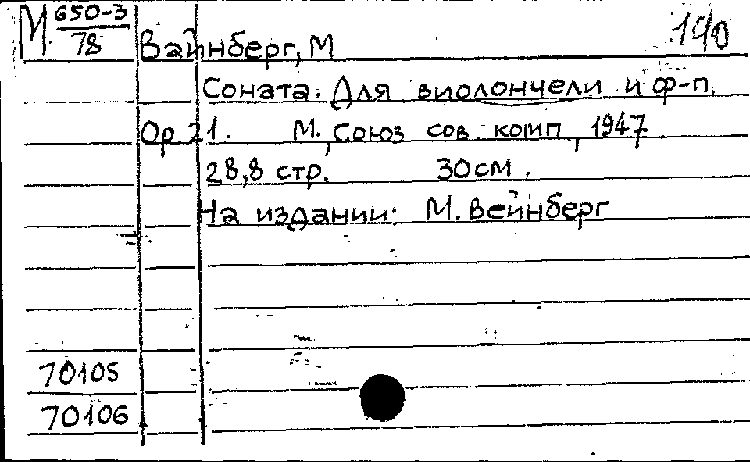 М 650-3
78
Вайнберг, М
Соната. Для виолончели и ф-п.
Op 21. М., Союз сов. комп, 1947.
28,8 стр. 30 см.
На издании: М. Вейнберг
70105
70106